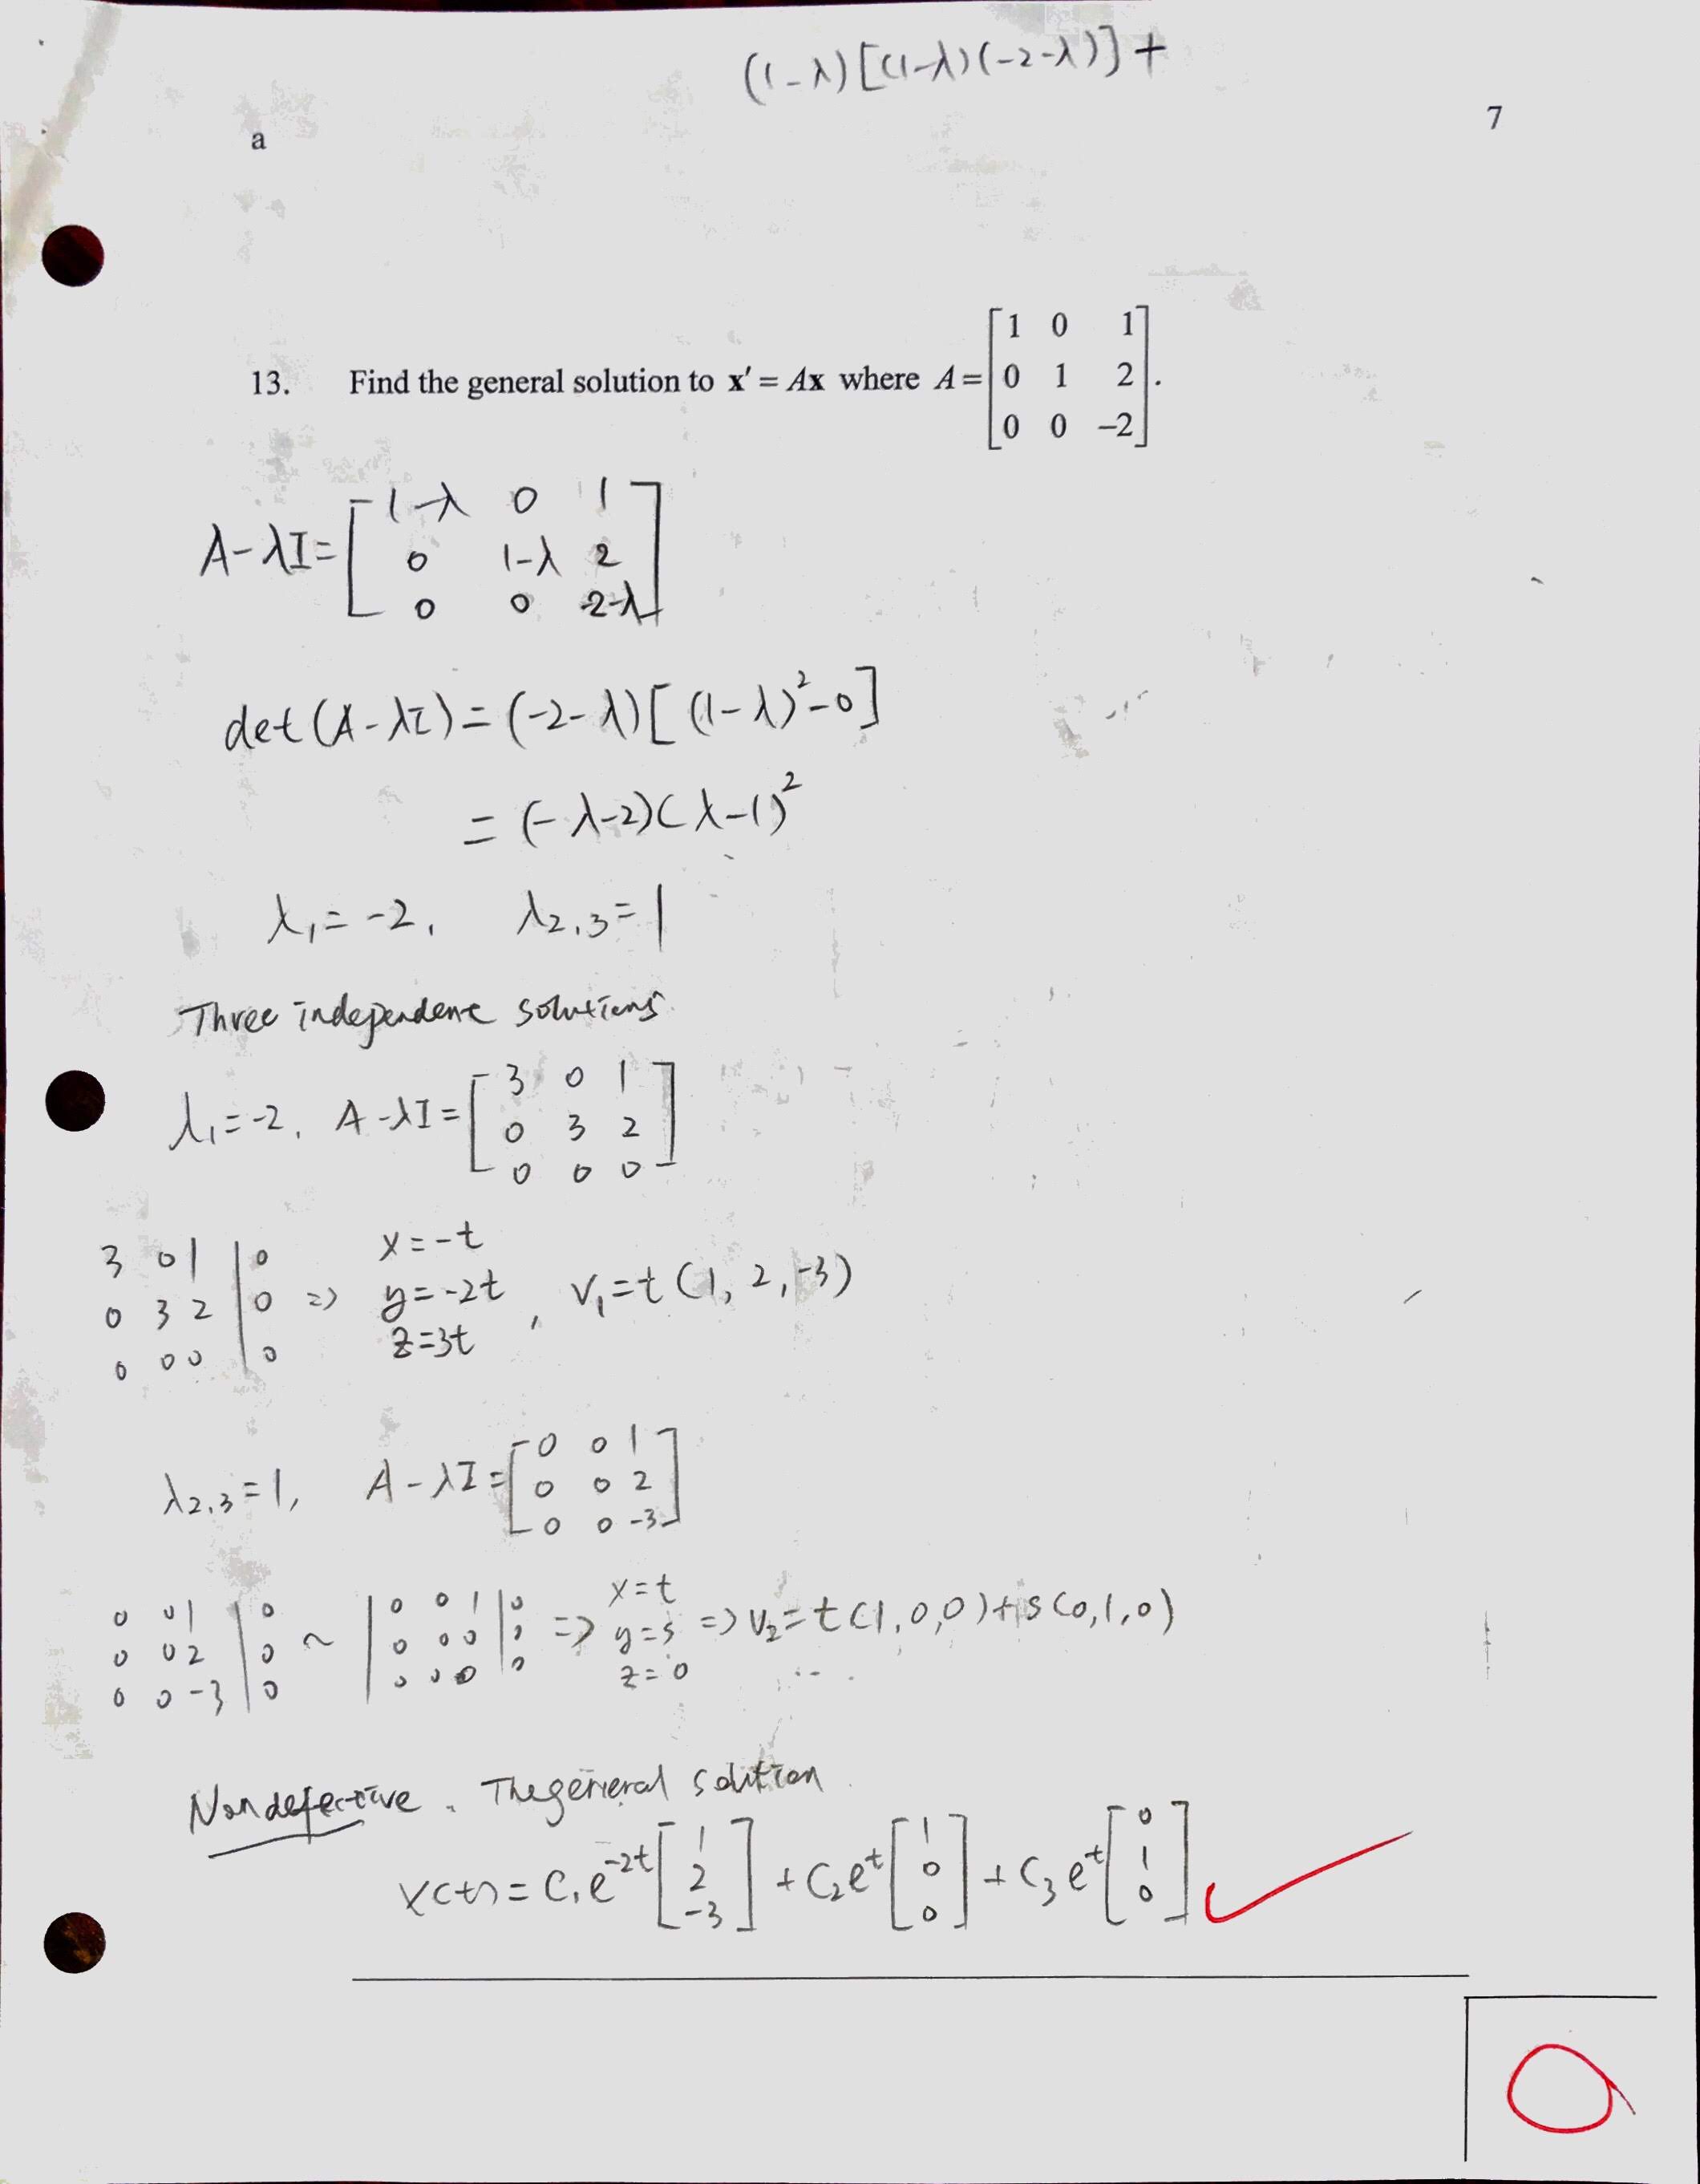 (1-λ)[(1-λ)(-2-λ)]+
7
a
13. Find the general solution to x′ = Ax where A = [1 0 1; 0 1 2; 0 0 −2].
A-λI = [1-λ 0 1; 0 1-λ 2; 0 0 -2-λ]
det(A-λI) = (-2-λ)[(1-λ)²-0]
= (-λ-2)(λ-1)²
λ₁ = -2, λ₂,₃ = 1
Three independent solutions.
λ₁ = -2, A-λI = [3 0 1; 0 3 2; 0 0 0]
3 0 1 | 0
0 3 2 | 0
0 0 0 | 0
=> x = -t
y = -2t
z = 3t
, v₁ = t(1, 2, -3)
λ₂,₃ = 1, A-λI = [0 0 1; 0 0 2; 0 0 -3]
0 0 1 | 0
0 0 2 | 0
0 0 -3 | 0
~ | 0 0 1 | 0
0 0 0 | 0
0 0 0 | 0
=> x = t
y = s
z = 0
=> v₂ = t(1,0,0)+s(0,1,0)
Nondefective. The general solution.
x(t) = c₁e^-2t [1; 2; -3] + c₂e^t [1; 0; 0] + c₃e^t [0; 1; 0]